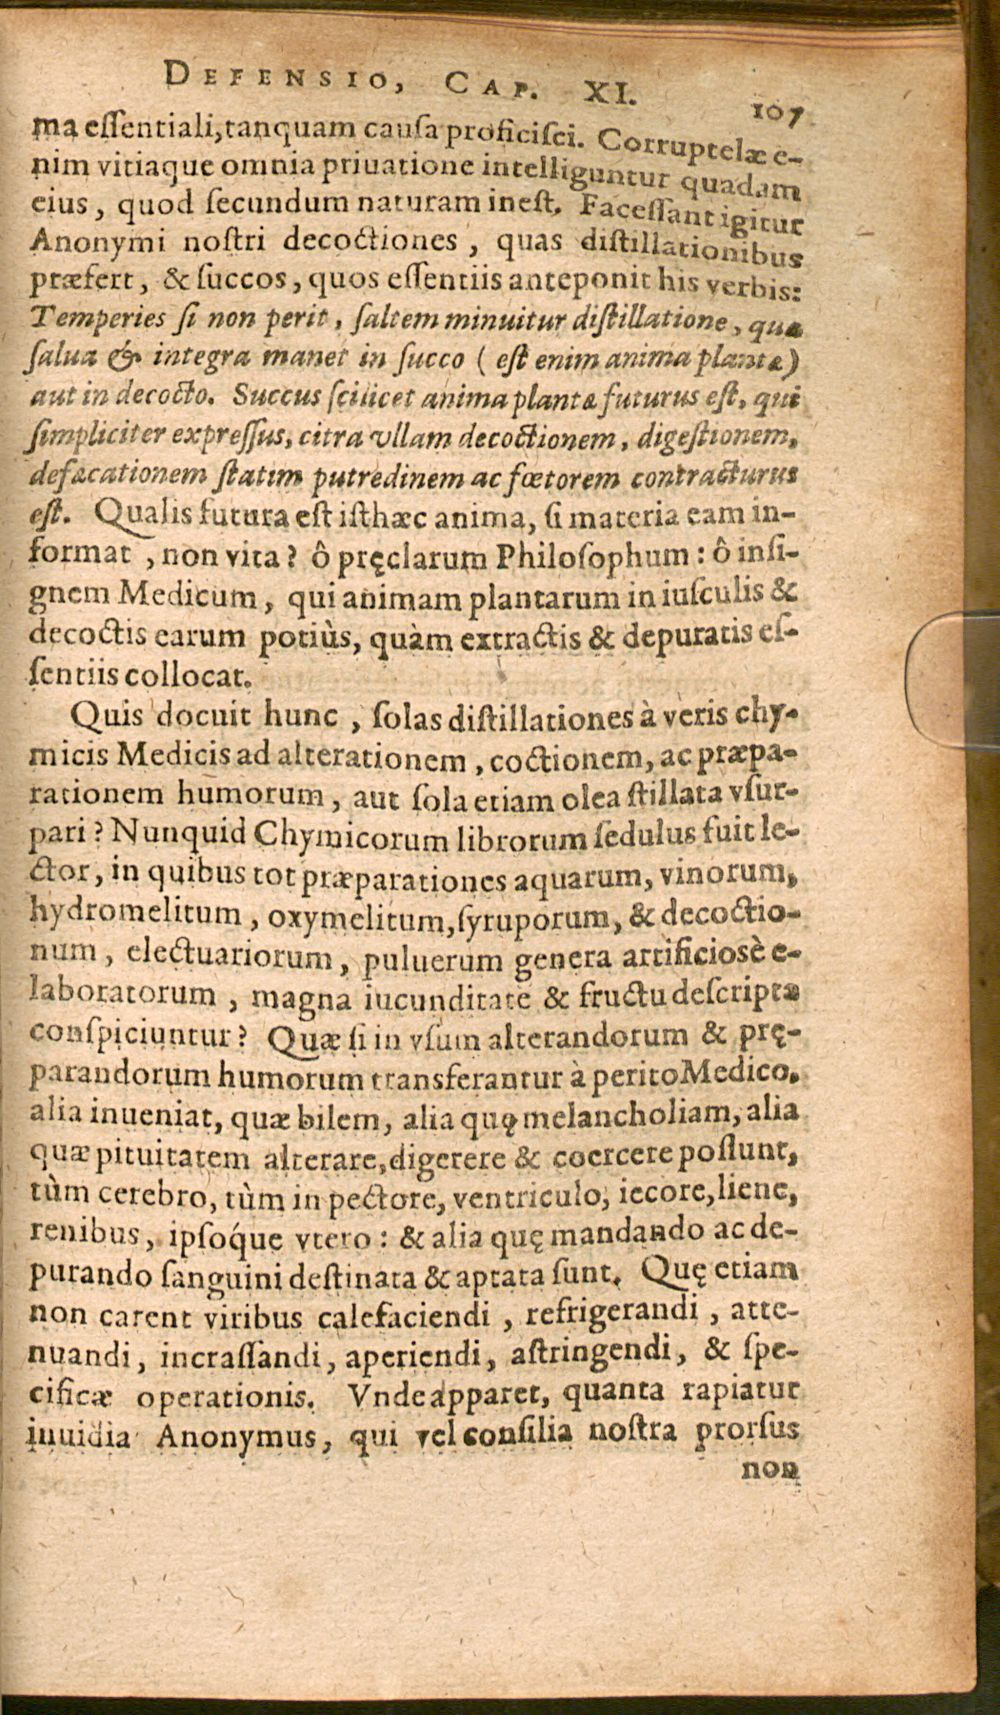 DEFENSIO, CAP. XI. 107
ma essentiali, tanquam causa proficisci. Corruptelæ e-
nim vitiaque omnia priuatione intelliguntur quadam
eius, quod secundum naturam inest. Facessant igitur
Anonymi nostri decoctiones, quas distillationibus
præfert, & succos, quos essentiis anteponit his verbis:
Temperies si non perit, saltem minuitur distillatione, quæ
salua & integra manet in succo (est enim anima plantæ)
aut in decocto. Succus scilicet anima plantæ futurus est, qui
simpliciter expressus, citra vllam decoctionem, digestionem,
defæcationem statim putredinem ac fœtorem contracturus
est. Qualis futura est isthæc anima, si materia eam in-
format, non vita? ô pręclarum Philosophum: ô insi-
gnem Medicum, qui animam plantarum in iusculis &
decoctis earum potiùs, quàm extractis & depuratis es-
sentiis collocat.
Quis docuit hunc, solas distillationes à veris chy-
micis Medicis ad alterationem, coctionem, ac præpa-
rationem humorum, aut sola etiam olea stillata vsur-
pari? Nunquid Chymicorum librorum sedulus fuit le-
ctor, in quibus tot præparationes aquarum, vinorum,
hydromelitum, oxymelitum, syruporum, & decoctio-
num, electuariorum, puluerum genera artificiosè e-
laboratorum, magna iucunditate & fructu descripta
conspiciuntur? Quæ si in vsum alterandorum & prę-
parandorum humorum transferantur à perito Medico,
alia inueniat, quæ bilem, alia quę melancholiam, alia
quæ pituitatem alterare, digerere & coercere possunt,
tùm cerebro, tùm in pectore, ventriculo, iecore, liene,
renibus, ipsóque vtero: & alia quę mandando ac de-
purando sanguini destinata & aptata sunt. Quę etiam
non carent viribus calefaciendi, refrigerandi, atte-
nuandi, incrassandi, aperiendi, astringendi, & spe-
cificæ operationis. Vnde apparet, quanta rapiatur
inuidia Anonymus, qui vel consilia nostra prorsus
non